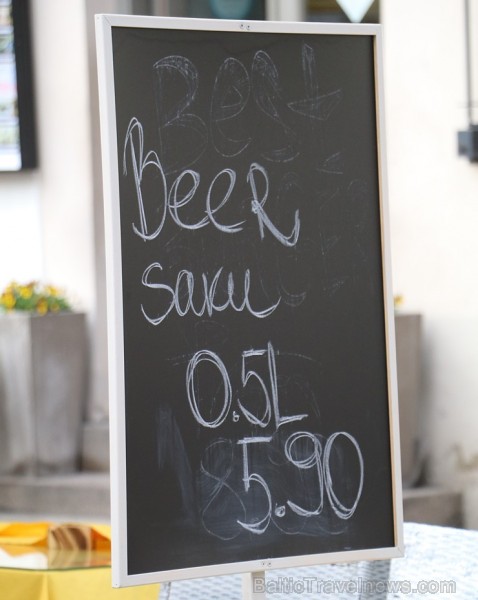 Best
Beer
saku
0.5L
5.90
BalticTravelnews.com